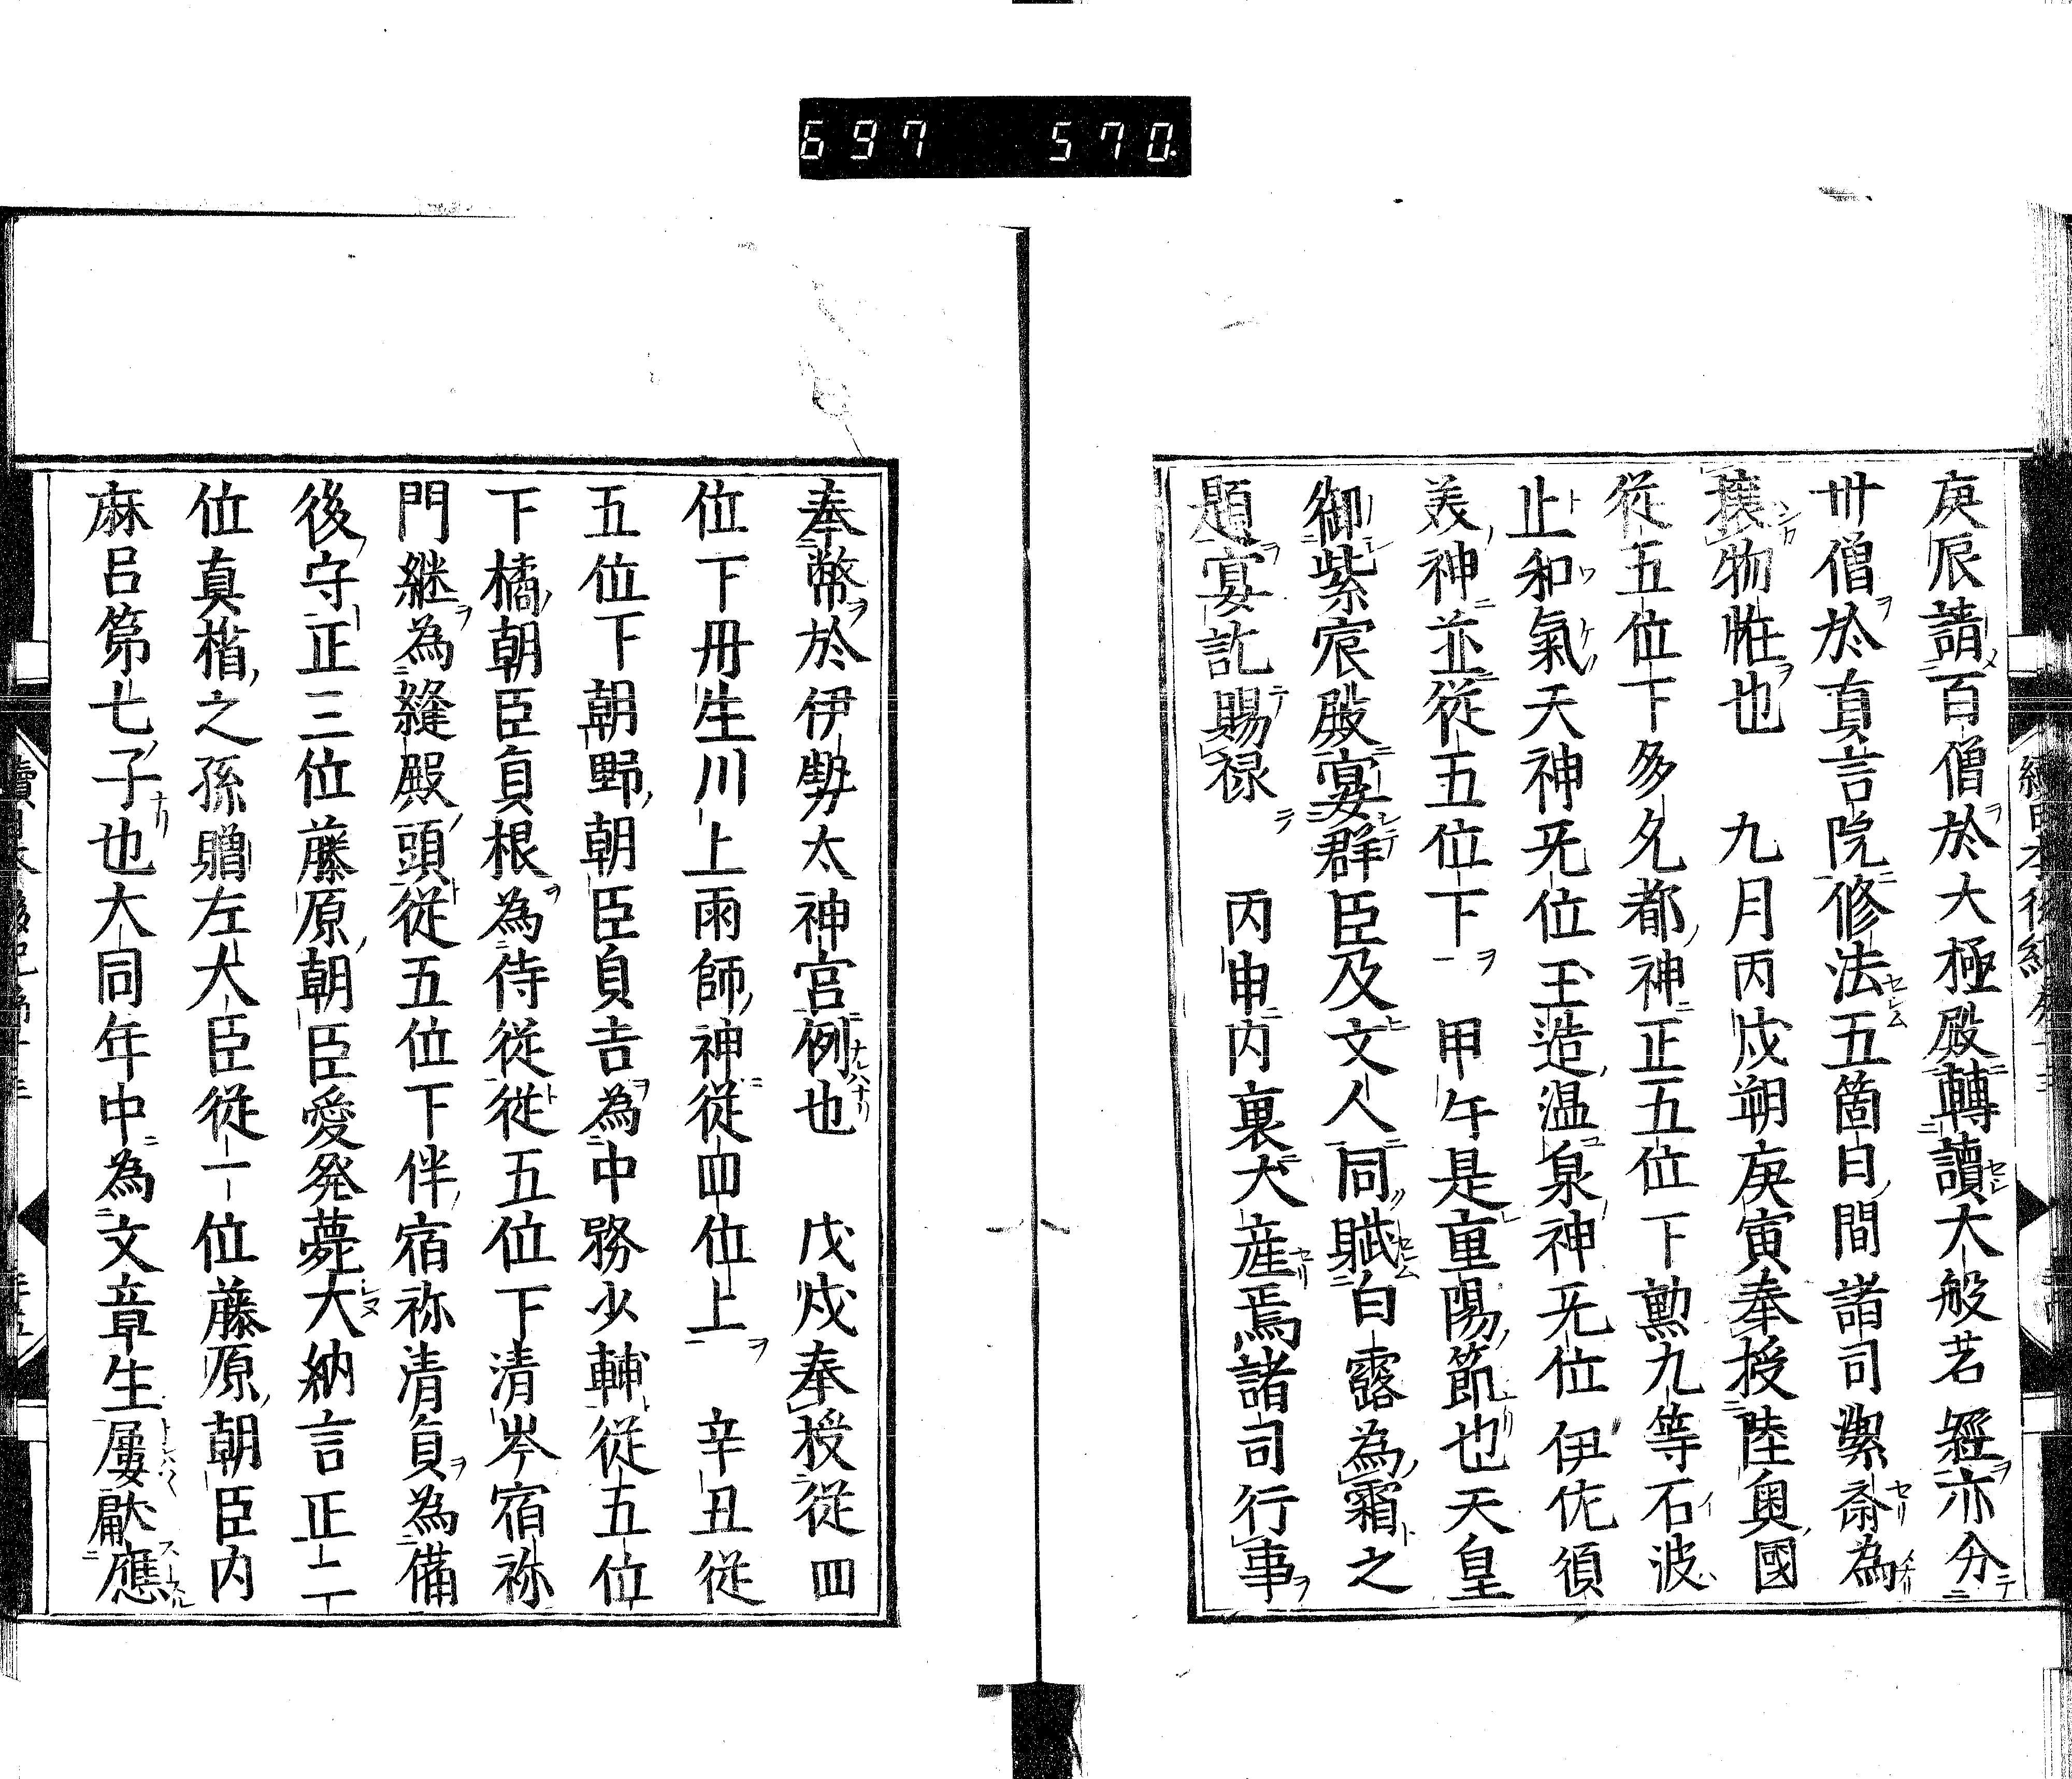 697 570
庚辰請百僧於大極殿轉讀大般若經亦分
丗僧於真言院修法五箇日間諸司潔斎為
攘物恠也 九月丙戌朔庚寅奉授陸奥國
從五位下多久都神正五位下勲九等石波
止和氣天神无位玉造温泉神无位伊佐須
美神並從五位下 甲午是重陽節也天皇
御紫宸殿宴群臣及文人同賦白露為霜之
題宴訖賜禄 丙申内裏犬産焉諸司行事
奉幣於伊勢太神宮例也 戊戌奉授從四
位下丹生川上雨師神從四位上 辛丑從
五位下朝野朝臣貞吉為中務少輔從五位
下橘朝臣貞根為侍從從五位下清岑宿祢
門継為縫殿頭從五位下伴宿祢清貞為備
後守正三位藤原朝臣愛発薨大納言正二
位真楯之孫贈左大臣從一位藤原朝臣内
麻呂第七子也大同年中為文章生屢厭應